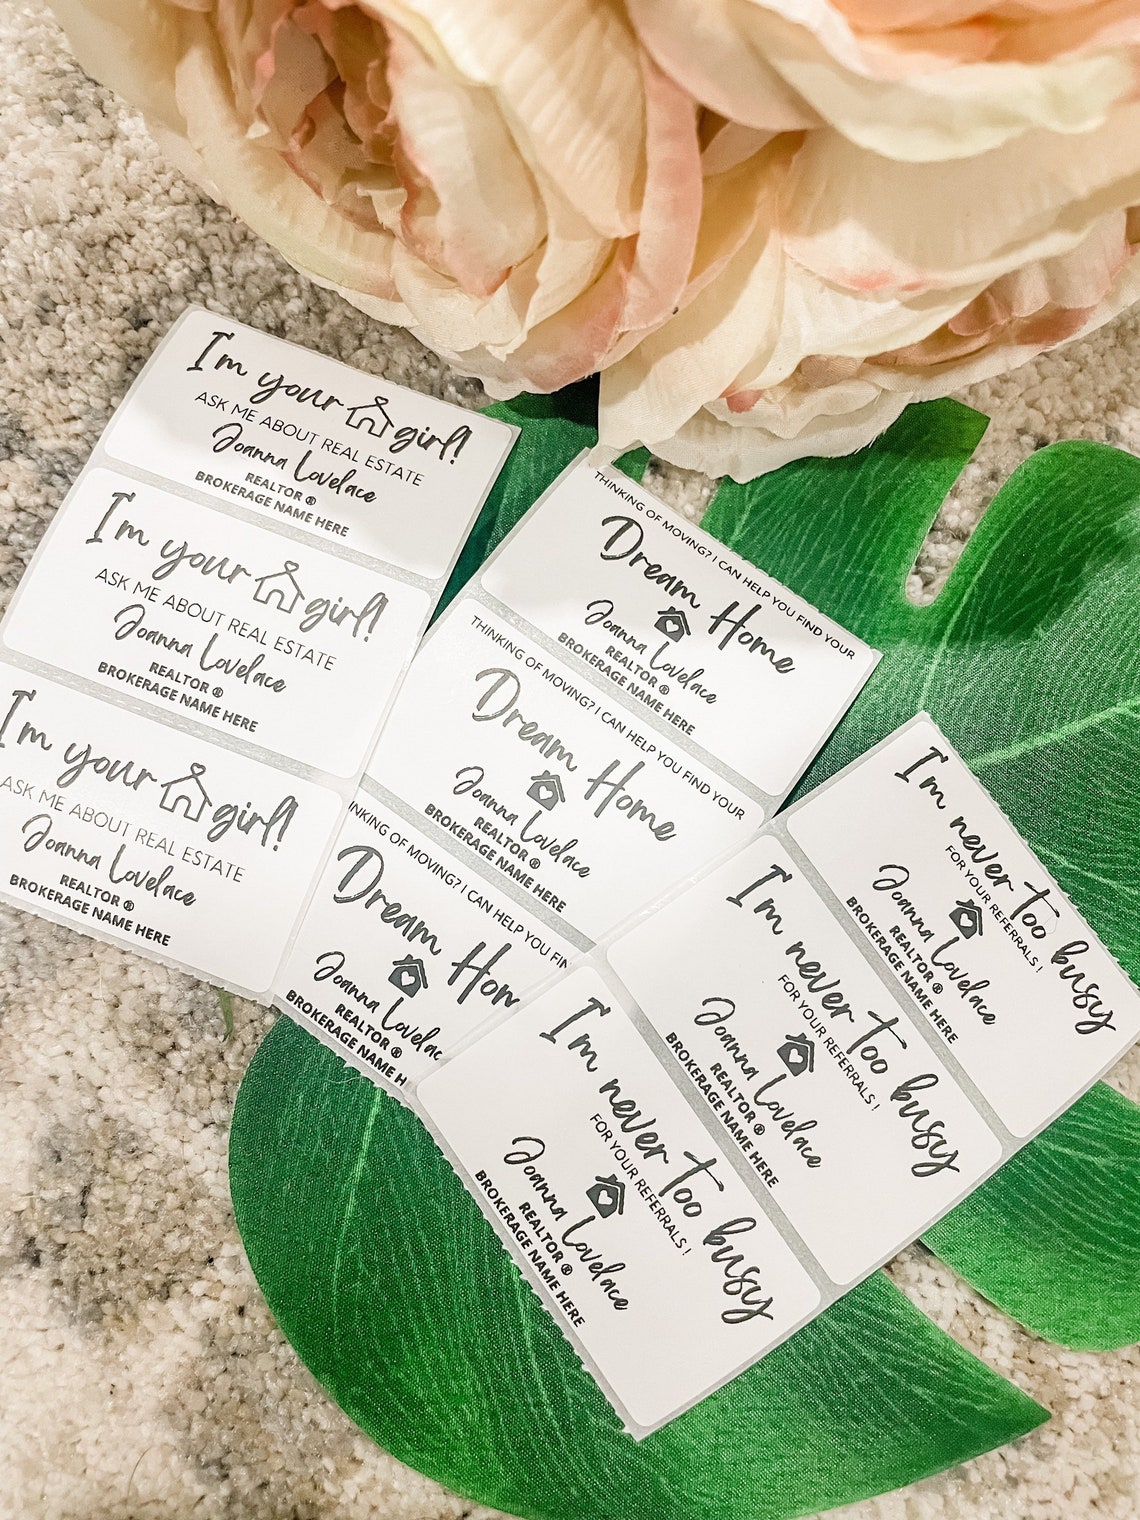 I'm your girl!
ASK ME ABOUT REAL ESTATE
Joanna Lovelace
REALTOR ®
BROKERAGE NAME HERE
I'm your girl!
ASK ME ABOUT REAL ESTATE
Joanna Lovelace
REALTOR ®
BROKERAGE NAME HERE
I'm your girl!
ASK ME ABOUT REAL ESTATE
Joanna Lovelace
REALTOR ®
BROKERAGE NAME HERE
THINKING OF MOVING? I CAN HELP YOU FIND YOUR
Dream Home
Joanna Lovelace
REALTOR ®
BROKERAGE NAME HERE
THINKING OF MOVING? I CAN HELP YOU FIND YOUR
Dream Home
Joanna Lovelace
REALTOR ®
BROKERAGE NAME HERE
INKING OF MOVING? I CAN HELP YOU FIN
Dream Hom
Joanna Lovelac
REALTOR ®
BROKERAGE NAME H
I'm never too busy
FOR YOUR REFERRALS !
Joanna Lovelace
REALTOR ®
BROKERAGE NAME HERE
I'm never too busy
FOR YOUR REFERRALS !
Joanna Lovelace
REALTOR ®
BROKERAGE NAME HERE
I'm never too busy
FOR YOUR REFERRALS !
Joanna Lovelace
REALTOR ®
BROKERAGE NAME HERE